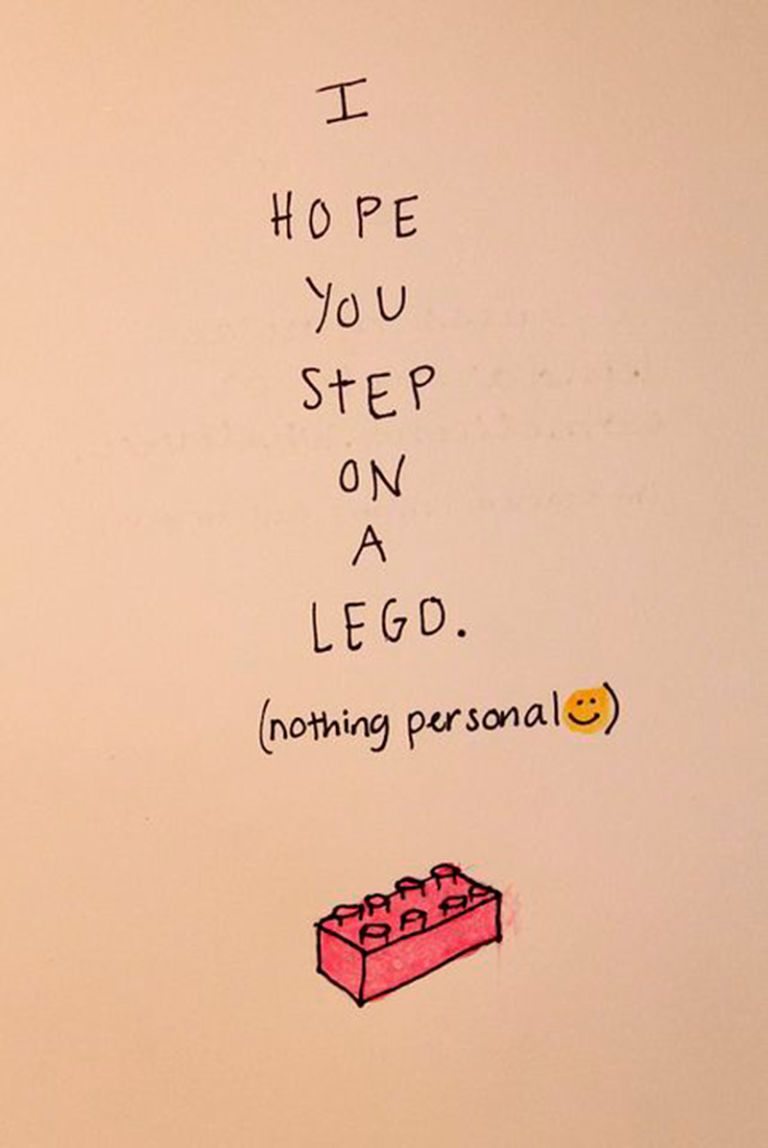 I
HOPE
YOU
StEP
ON
A
LEGO.
(nothing personal☺)